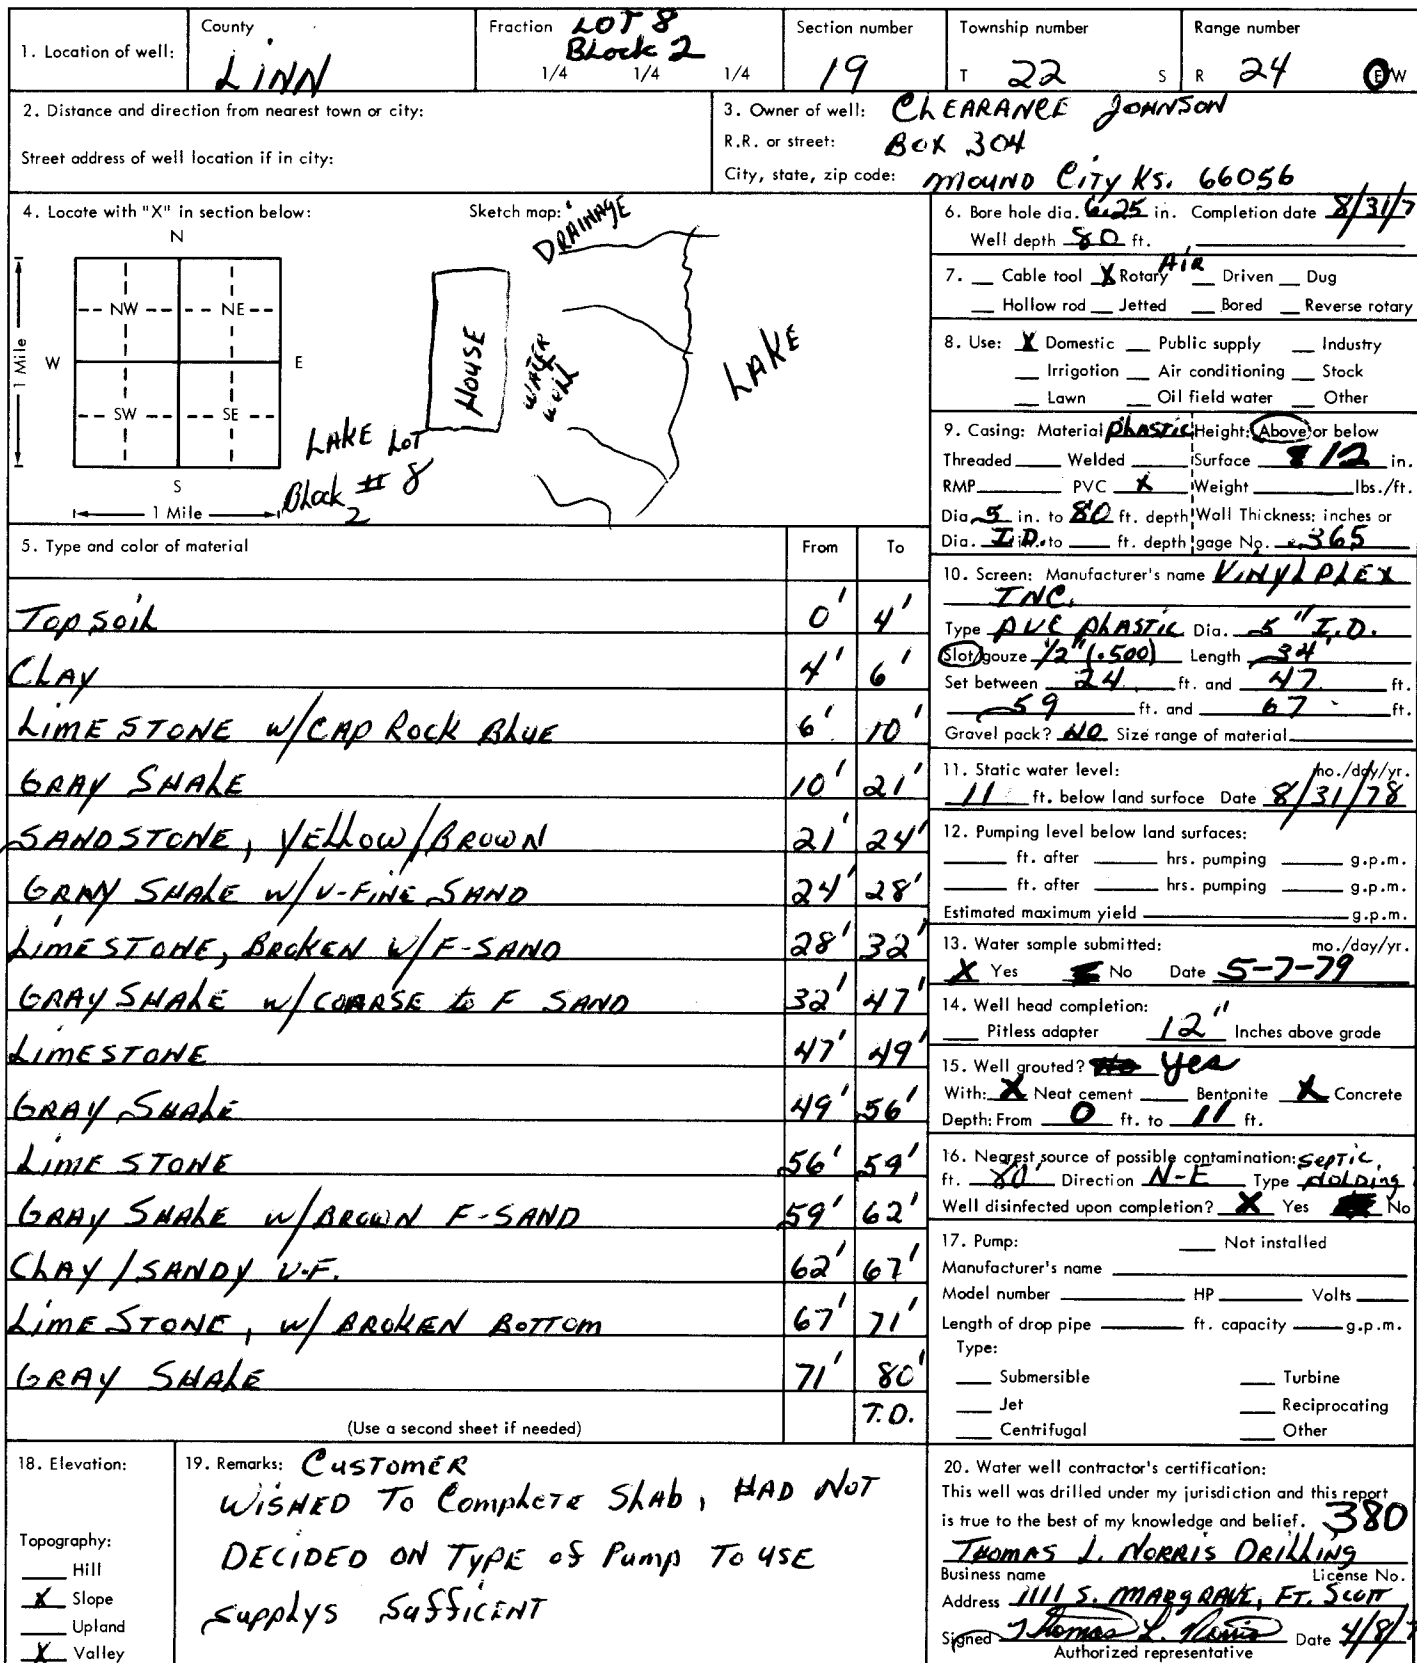 1. Location of well:
County
LINN
Fraction LOT 8
Block 2
1/4 1/4 1/4
Section number
19
Township number
T 22 S
Range number
R 24 E/W
2. Distance and direction from nearest town or city:
Street address of well location if in city:
3. Owner of well: CLEARANCE JOHNSON
R.R. or street: BOX 304
City, state, zip code: MOUND CITY KS. 66056
4. Locate with "X" in section below:
N
NW NE
W E
SW SE
S
1 Mile
1 Mile
Sketch map:
DRAINAGE
HOUSE
WATER WELL
LAKE
LAKE LOT
Block # 8
2
5. Type and color of material From To
Top soil 0' 4'
CLAY 4' 6'
LIMESTONE w/CAP ROCK BLUE 6' 10'
GRAY SHALE 10' 21'
SANDSTONE, YELLOW/BROWN 21' 24'
GRAY SHALE w/ V-FINE SAND 24' 28'
LIMESTONE, BROKEN W/F-SAND 28' 32'
GRAY SHALE w/COARSE to F SAND 32' 47'
LIMESTONE 47' 49'
GRAY SHALE 49' 56'
LIME STONE 56' 59'
GRAY SHALE w/BROWN F-SAND 59' 62'
CLAY/SANDY V-F. 62' 67'
LIME STONE, w/ BROKEN BOTTOM 67' 71'
GRAY SHALE 71' 80'
T.D.
(Use a second sheet if needed)
6. Bore hole dia. 6.25 in. Completion date 8/31/7
Well depth 80 ft.
7. Cable tool X Rotary AIR Driven Dug
Hollow rod Jetted Bored Reverse rotary
8. Use: X Domestic Public supply Industry
Irrigation Air conditioning Stock
Lawn Oil field water Other
9. Casing: Material PLASTIC Height: Above or below
Threaded Welded Surface 12 in.
RMP PVC X Weight lbs./ft.
Dia. 5 in. to 80 ft. depth Wall Thickness: inches or
Dia. I.D. in. to ft. depth gage No. .365
10. Screen: Manufacturer's name VINYLPLEX
INC.
Type PVC PLASTIC Dia. 5" I.D.
Slot/gauze 1/2" (.500) Length 34'
Set between 24 ft. and 47 ft.
59 ft. and 67 ft.
Gravel pack? NO Size range of material
11. Static water level: mo./day/yr.
11 ft. below land surface Date 8/31/78
12. Pumping level below land surfaces:
ft. after hrs. pumping g.p.m.
ft. after hrs. pumping g.p.m.
Estimated maximum yield g.p.m.
13. Water sample submitted: mo./day/yr.
X Yes No Date 5-7-79
14. Well head completion:
Pitless adapter 12" Inches above grade
15. Well grouted? Yes
With: X Neat cement Bentonite X Concrete
Depth: From 0 ft. to 11 ft.
16. Nearest source of possible contamination: SEPTIC
ft. 80' Direction N-E Type HOLDING
Well disinfected upon completion? X Yes No
17. Pump: Not installed
Manufacturer's name
Model number HP Volts
Length of drop pipe ft. capacity g.p.m.
Type:
Submersible Turbine
Jet Reciprocating
Centrifugal Other
18. Elevation:
Topography:
Hill
X Slope
Upland
X Valley
19. Remarks: CUSTOMER
WISHED TO COMPLETE SLAB, HAD NOT
DECIDED ON TYPE OF PUMP TO USE
SUPPLYS SUFFICENT
20. Water well contractor's certification:
This well was drilled under my jurisdiction and this report
is true to the best of my knowledge and belief. 380
THOMAS L. NORRIS DRILLING
Business name License No.
Address 1111 S. MARGRAVE, FT. SCOTT
Signed Thomas L. Norris Date 4/8/7
Authorized representative